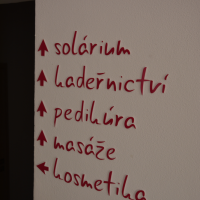 ↑ solárium
↑ kadeřnictví
↑ pedikúra
↑ masáže
← kosmetika